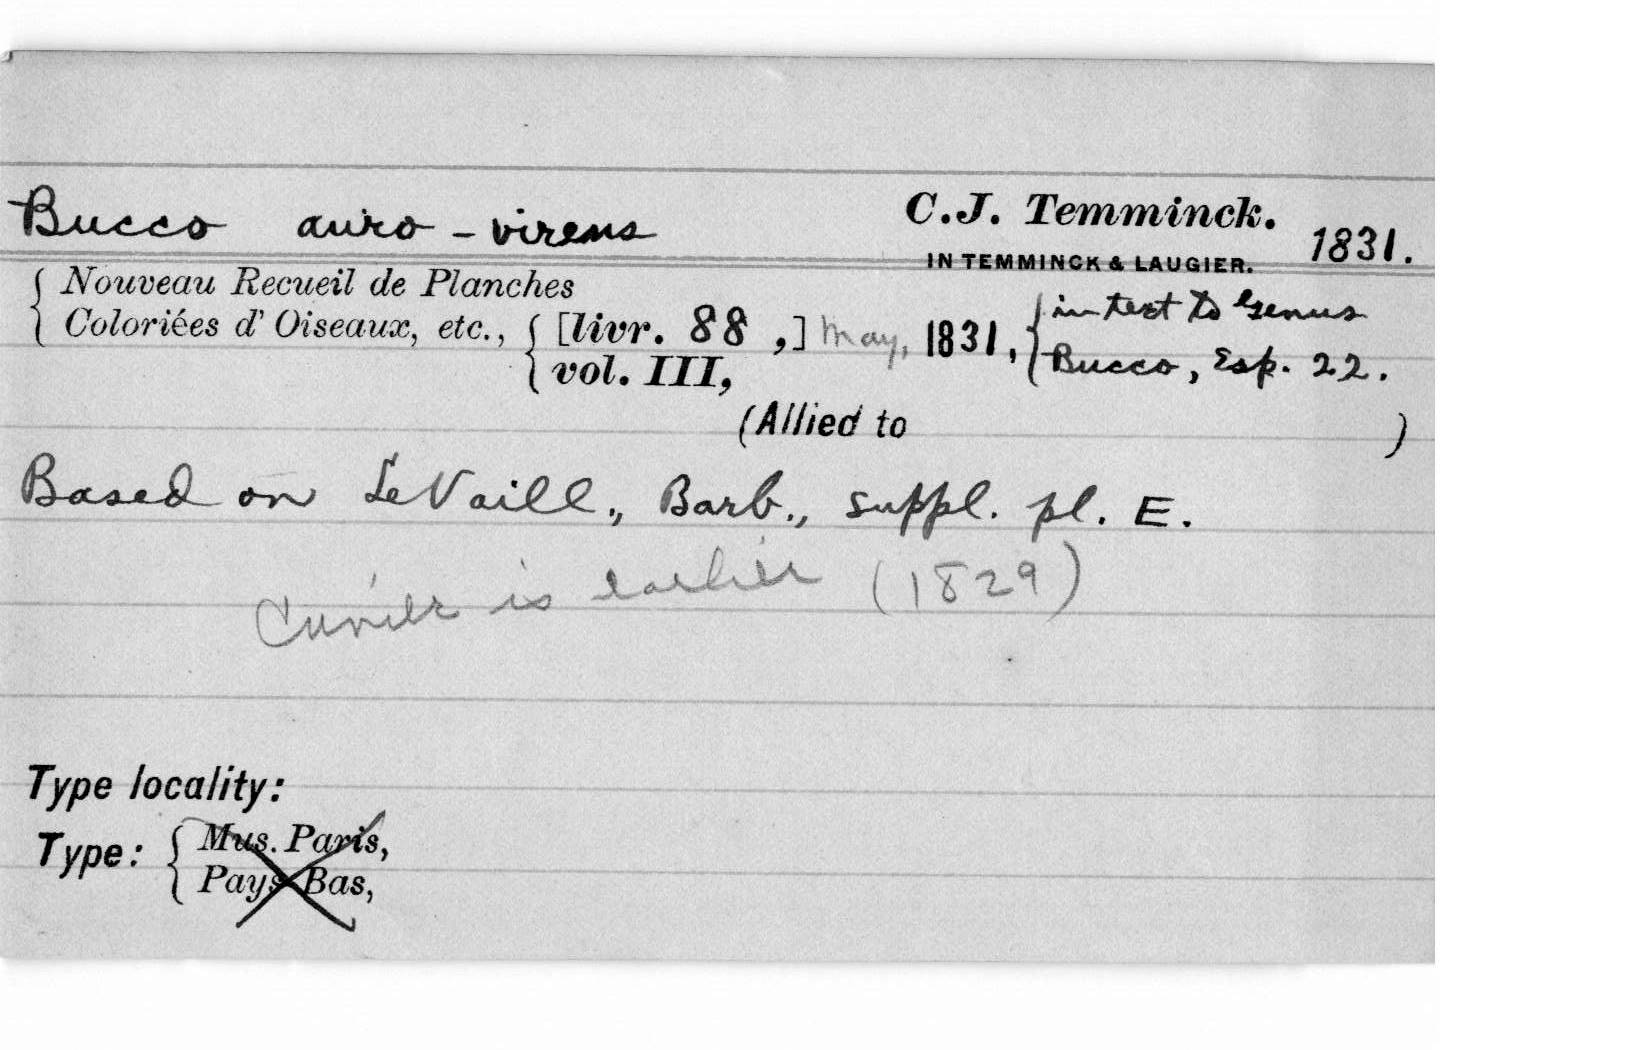 Bucco auro-virens C.J. Temminck. 1831.
IN TEMMINCK & LAUGIER.
Nouveau Recueil de Planches
Coloriées d' Oiseaux, etc., [livr. 88 ,] May, 1831, in text to Genus
vol. III, Bucco, Esp. 22.
(Allied to )
Based on LeVaill., Barb., suppl. pl. E.
Cuvier is earlier (1829)
Type locality:
Type: Mus. Paris,
Pays Bas,